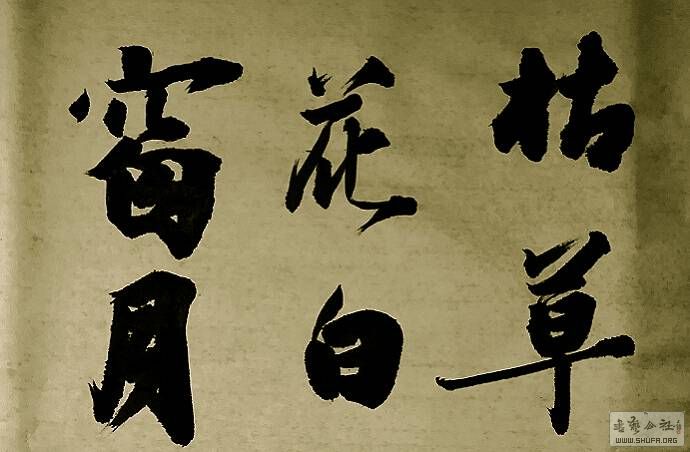 枯草
花白
窗月
書藝公社
WWW.SHUFA.ORG